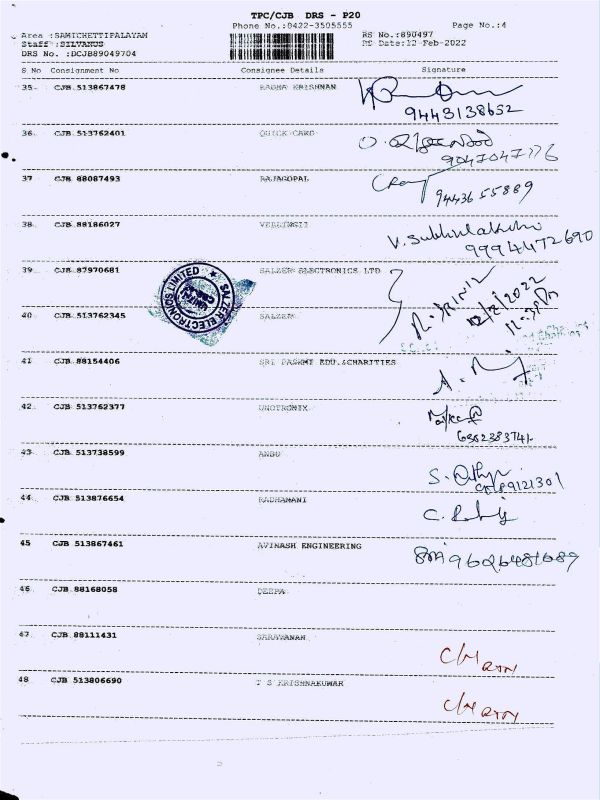 TPC/CJB DRS - P20
Phone No.:0422-3505555 Page No.:4
Area :SAMICHETTIPALAYAM RS No.:890497
Staff :SILVANUS Date:12-Feb-2022
DRS No. :DCJB89049704
S No Consignment No Consignee Details Signature
35. CJB 513867478 RADHA KRISHNAN
9443138652
36. CJB 513762401 QUICK CARD
37 CJB 88087493 RAJAGOPAL
9443655889
38. CJB 88186027 VELLINGII
V. Subbulakshmi
9994472690
39. CJB 87970681 SALZER ELECTRONICS LTD
SALZER ELECTRONICS LIMITED
12/2/2022
40. CJB 513762345 SALZER
41 CJB 88154406 SRI DASHMI EDU.&CHARITIES
42. CJB 513762377 UNOTRONIX
6382383741
43. CJB 513738599 ANBU
44. CJB 513876654 RADHAMANI
45 CJB 513867461 AVINASH ENGINEERING
9626481689
46. CJB 88168058 DEEPA
47. CJB 88111431 SARAVANAN
48 CJB 513806690 T S KRISHNAKUMAR